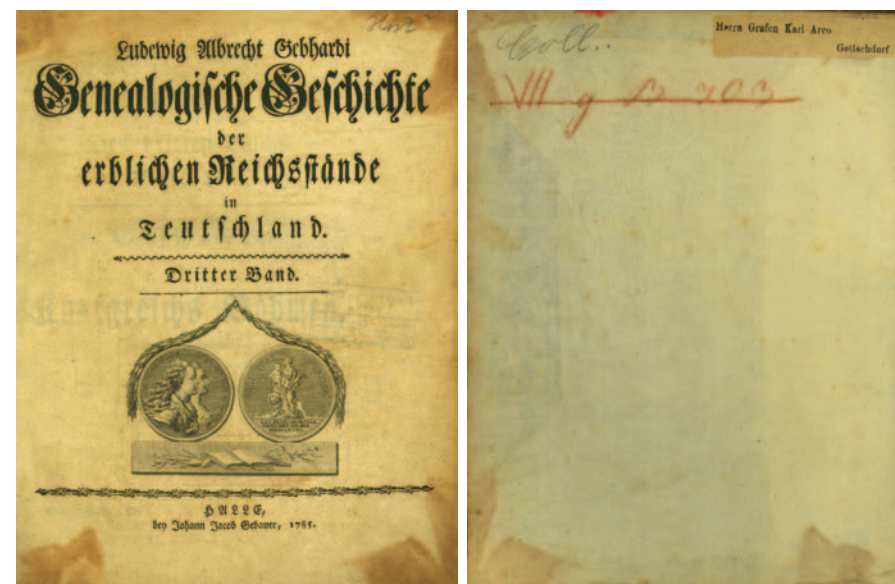 Ludewig Albrecht Gebhardi
Genealogiſche Geſchichte
der
erblichen Reichsſtände
in
Teutſchland.
Dritter Band.
HALLE,
bey Johann Jacob Gebauer, 1785.
Coll..
Herrn Grafen Karl Arco
Gottschdorf
VII g